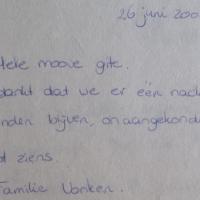 26 juni 200
Hele mooie gite.
dankt dat we er één nach
nden blijven, onaangekond
t ziens.
Familie Vonken.